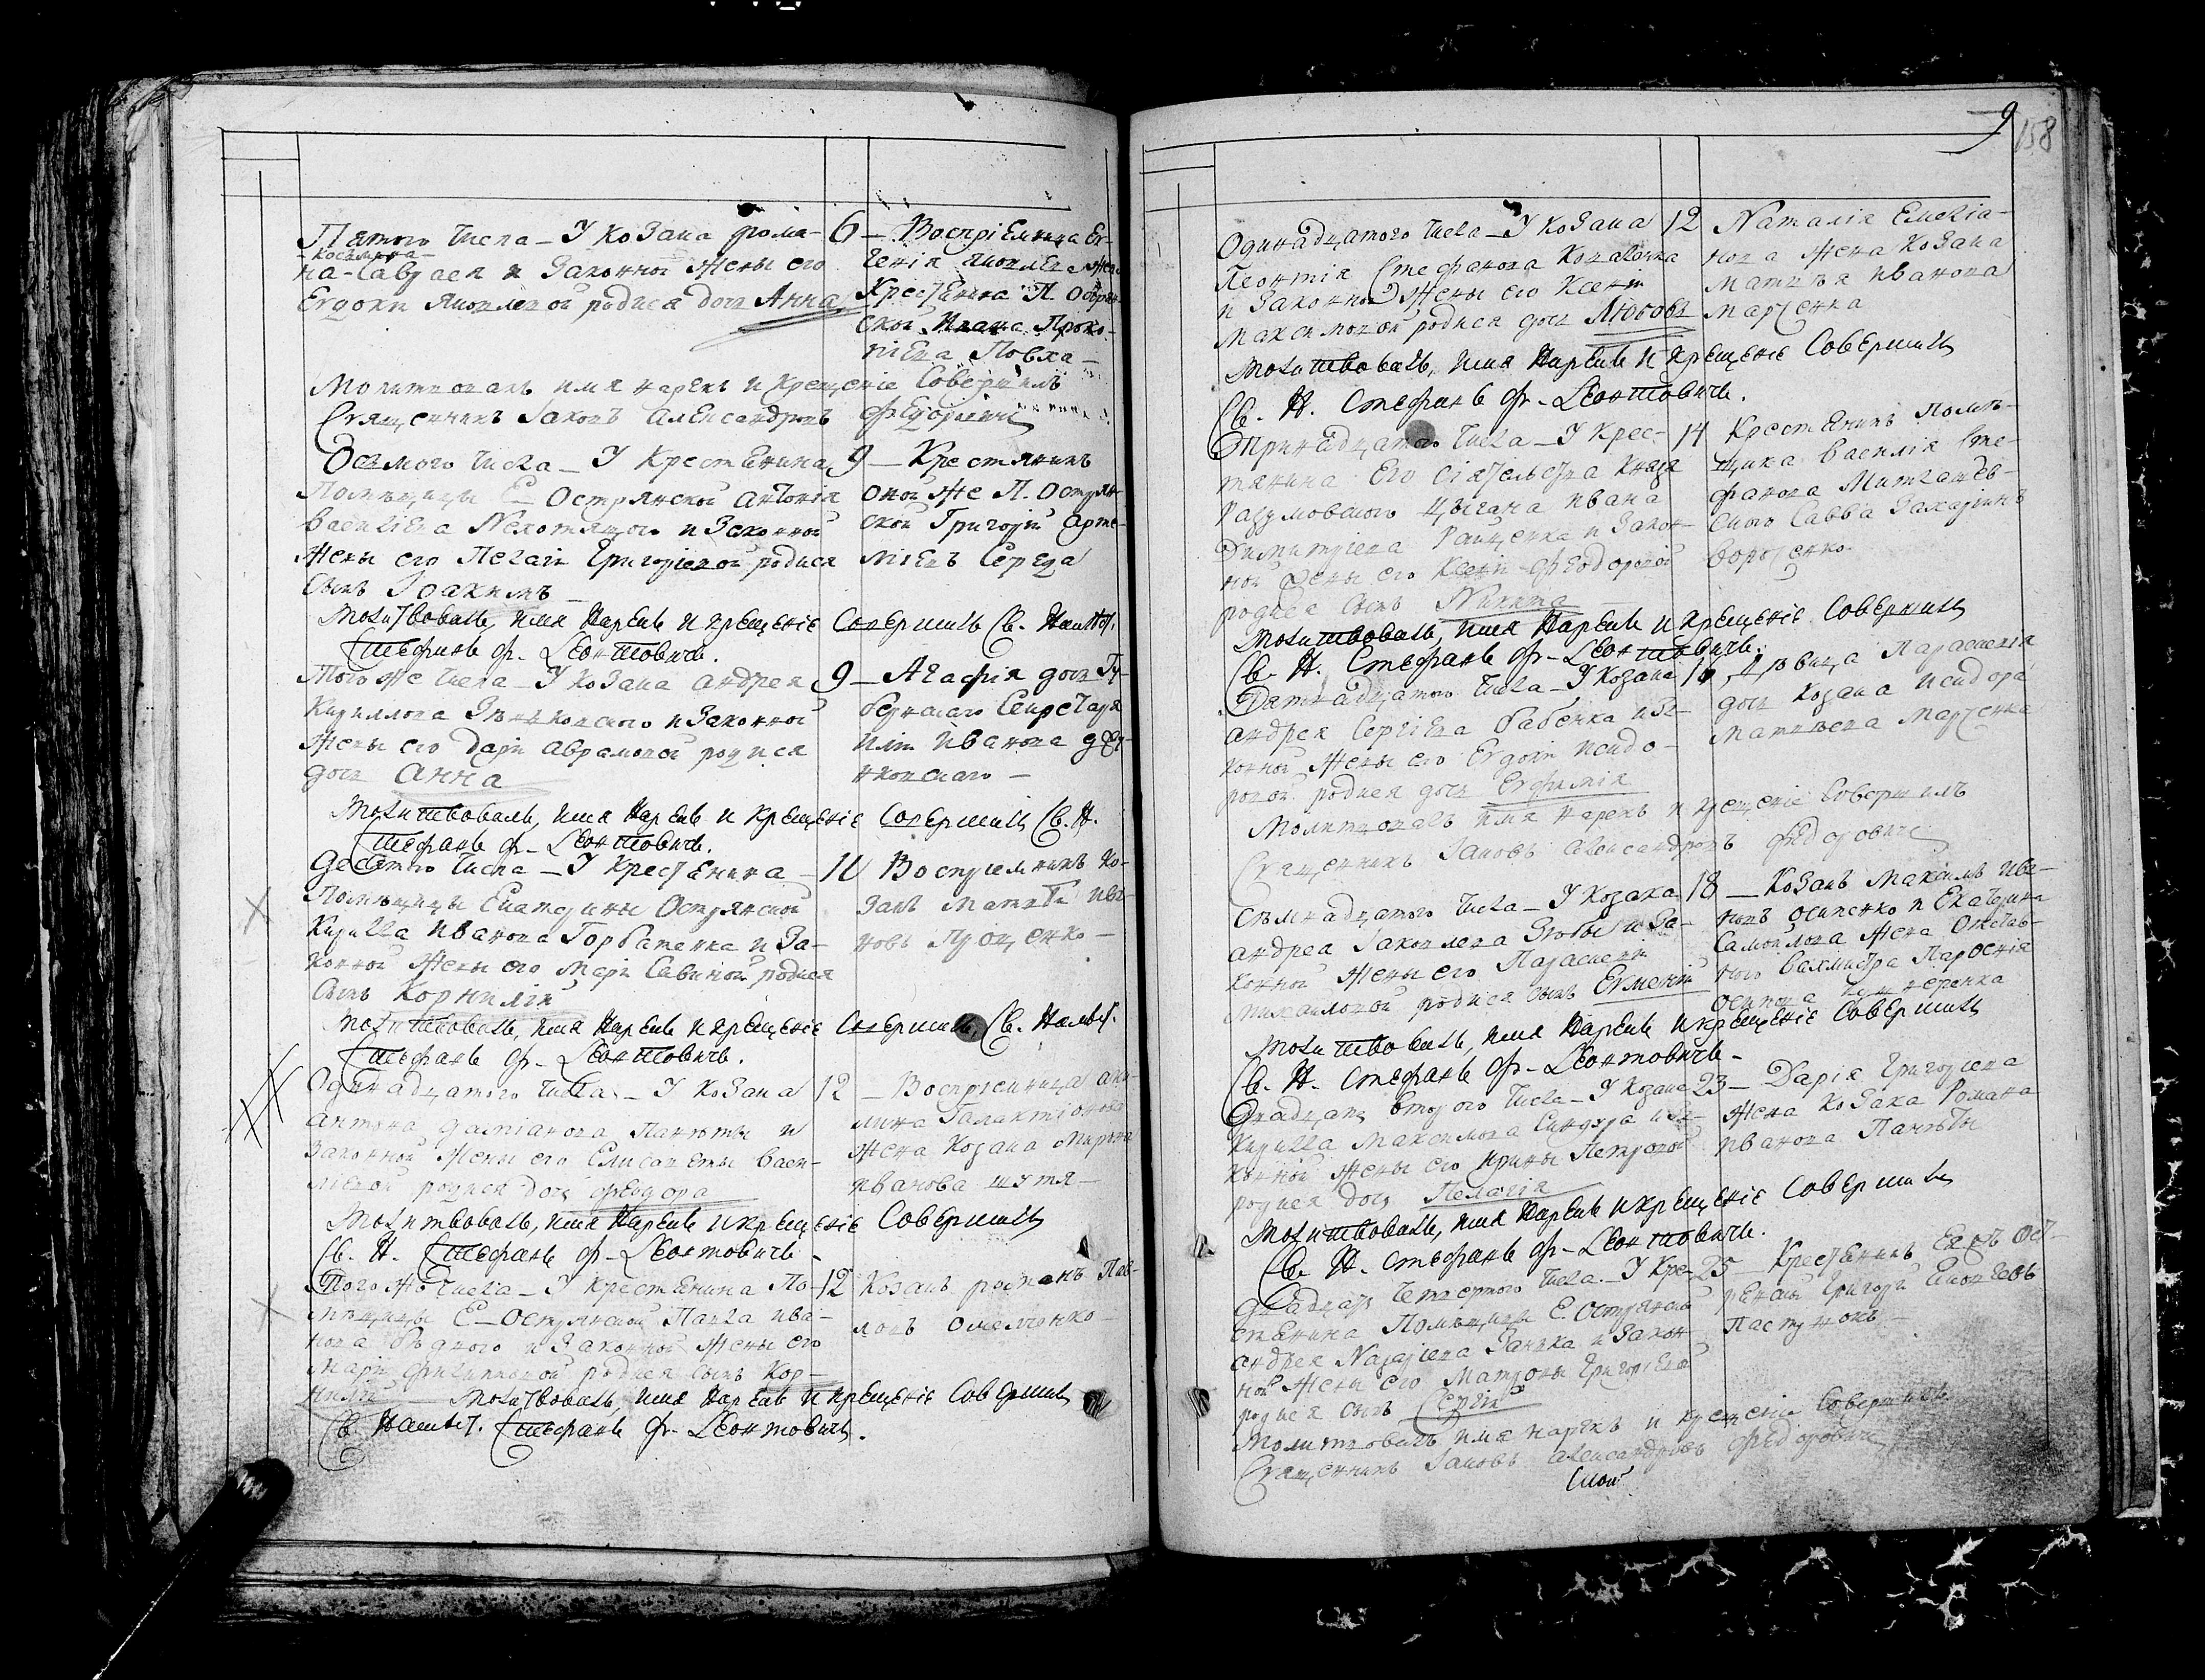 Пятого числа – У козака Рома-
– Космина –
на Саврася и законной жены его
Евдокіи Яковлевой родися дочь Анна
6 – Воспріемница Ев-
генія Яковлева жена
крестьянина П.
ской Ивана Проко-
піева
Молитвовалъ имя нарекъ и крещеніе совершилъ
Священникъ Іаковъ Александровъ Федоровичъ
Осьмого числа – У крестьянина
помѣщицы Е – Острянской Антонія
Василіева Нехотящого и законной
жены его Пелагіи Григоріевой родися
сынъ Іоакимъ –
9 – Крестянинъ
оной же П. Острян-
ской Григорій Арте-
міевъ Середа
Молитвовалъ, имя нарекъ и крещеніе совершилъ Св. Намѣст.
Стефанъ Ф. – Леонтовичъ.
Того же числа – У козака Андрея
Кириллова Зѣньковского и законной
жены его Даріи Аврамовой родися
дочь Анна
9 – Агафія дочь Гу-
бернскаго секретаря
Иліи Иванова
Молитвовалъ, имя нарекъ и крещеніе совершилъ Св. Н.
Стефанъ Ф. – Леонтовичъ.
Десятого числа – У крестьянина –
помѣщицы Екатерины Острянской
Кирилла Иванова Горбатенка и за-
конной жены его Маріи Савиной родися
сынъ Корнилій
11 Воспріемникъ ко-
закъ Матвѣй Ива-
новъ Проценко –
Молитвовалъ, имя нарекъ и крещеніе совершилъ, Св. Намѣст.
Стефанъ Ф. – Леонтовичъ.
Одинадцатого числа – У козака
Антона Даміанова Панѣты и
законной жены его Елисаветы Васи-
ліевой родися дочь Феодора
12 – Воспріемница Аки-
лина Галактіонова
жена козака Мирона
Иванова Шутя –
Молитвовалъ, имя нарекъ и крещеніе совершилъ
Св. Н. Стефанъ Ф. – Леонтовичъ –
Того жъ числа – У крестьянина по-
мѣщицы Е – Острянской Павла Ива-
нова Бѣдного и законной жены его
Маріи Филипповой родися сынъ Кор-
нилій
12 Козакъ Романъ Пав-
ловъ Омельянко –
Молитвовалъ, имя нарекъ и крещеніе совершилъ
Св. Намѣст. Стефанъ Ф. – Леонтовичъ.
9
158
Одинадцатого числа – У козака
Леонтія Стефанова Ковалена
и законной жены его Ксеніи
Максимовой родися дочь Любовь
12 Наталія Емеліа-
нова жена козака
Матвѣя Иванова
Марченка
Молитвовалъ, имя нарекъ и крещеніе совершилъ
Св. Н. Стефанъ Ф. – Леонтовичъ.
Тринадцатого числа – У крес-
тянина его сіятельства князя
Разумовского цыгана Ивана
Димитріева Райченка и закон-
ной жены его Ксеніи Феодоровой
родися сынъ Никита
14 Крестянинъ помѣ-
щика Василія Сте-
фанова Митлашев-
ского Савва Захаріинъ
Вороненко.
Молитвовалъ, имя нарекъ и крещеніе совершилъ
Св. Н. Стефанъ Ф. – Леонтовичъ.
Пятнадцатого числа – У козака
Андрея Сергіева Бабенка и за-
конной жены его Евдокіи Исидо-
ровой родися дочь Евфимія
16 Дѣвица Параскевія
дочь козака Исидора
Матвѣева Марченка
Молитвовалъ имя нарекъ и крещеніе совершилъ
Священникъ Іаковъ Александровъ Федоровичъ
Сѣмнадцатого числа – У козака
Андрея Іаковлева Зюбы и за-
конной жены его Параскевіи
Михайловой родися сынъ Евменій
18 – Козакъ Максимъ Ива-
новъ Осипенко и Екатерина
Самойлова жена отстав-
ного вахмистра Парфенія
Осипова
Молитвовалъ, имя нарекъ и крещеніе совершилъ
Св. Н. Стефанъ Ф. – Леонтовичъ –
Двадцать второго числа – У козака
Кирилла Максимова Синдура и за-
конной жены его Ирины Петровой
родися дочь Пелагія
23 – Дарія Григоріева
жена козака Романа
Иванова Панѣты
Молитвовалъ, имя нарекъ и крещеніе совершилъ
Св. Н. Стефанъ Ф. – Леонтовичъ.
Двадцать четвертого числа – У кре-
стьянина помѣщицы Е. Острянской
Андрея Назаріева Ганжа и закон-
ной жены его Матроны Григоріевой
родися сынъ Сергій
25 – Крестьянинъ
Григорій
Пастуховъ –
Молитвовалъ имя нарекъ и крещеніе совершилъ
Священникъ Іаковъ Александровъ Федоровичъ